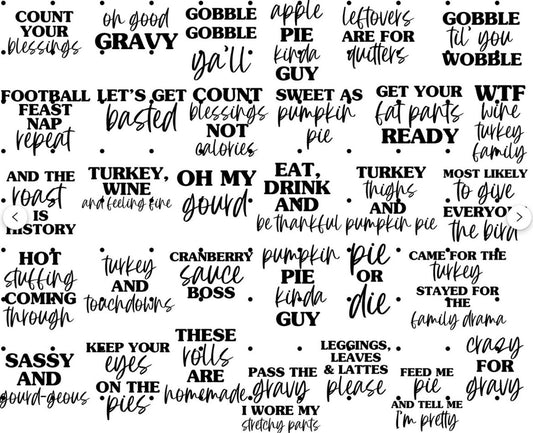 COUNT
YOUR
blessings
oh good
GRAVY
GOBBLE
GOBBLE
ya'll
apple
PIE
kinda
GUY
leftovers
ARE FOR
quitters
GOBBLE
til' you
WOBBLE
FOOTBALL
FEAST
NAP
repeat
LET'S GET
basted
COUNT
blessings
NOT
calories
SWEET AS
pumpkin
pie
GET YOUR
fat pants
READY
WTF
wine
turkey
family
AND THE
roast
IS
HISTORY
TURKEY,
WINE
and feeling fine
OH MY
gourd
EAT,
DRINK
AND
be thankful
TURKEY
thighs
AND
pumpkin pie
MOST LIKELY
to give
EVERYONE
the bird
HOT
stuffing
COMING
through
turkey
AND
touchdowns
CRANBERRY
sauce
BOSS
pumpkin
PIE
kinda
GUY
pie
OR
die
CAME FOR THE
turkey
STAYED FOR
THE
family drama
SASSY
AND
gourd-geous
KEEP YOUR
eyes
ON THE
pies
THESE
rolls
ARE
homemade
PASS THE
gravy
I WORE MY
stretchy pants
LEGGINGS,
LEAVES
& LATTES
please
FEED ME
pie
AND TELL ME
I'm pretty
crazy
FOR
gravy